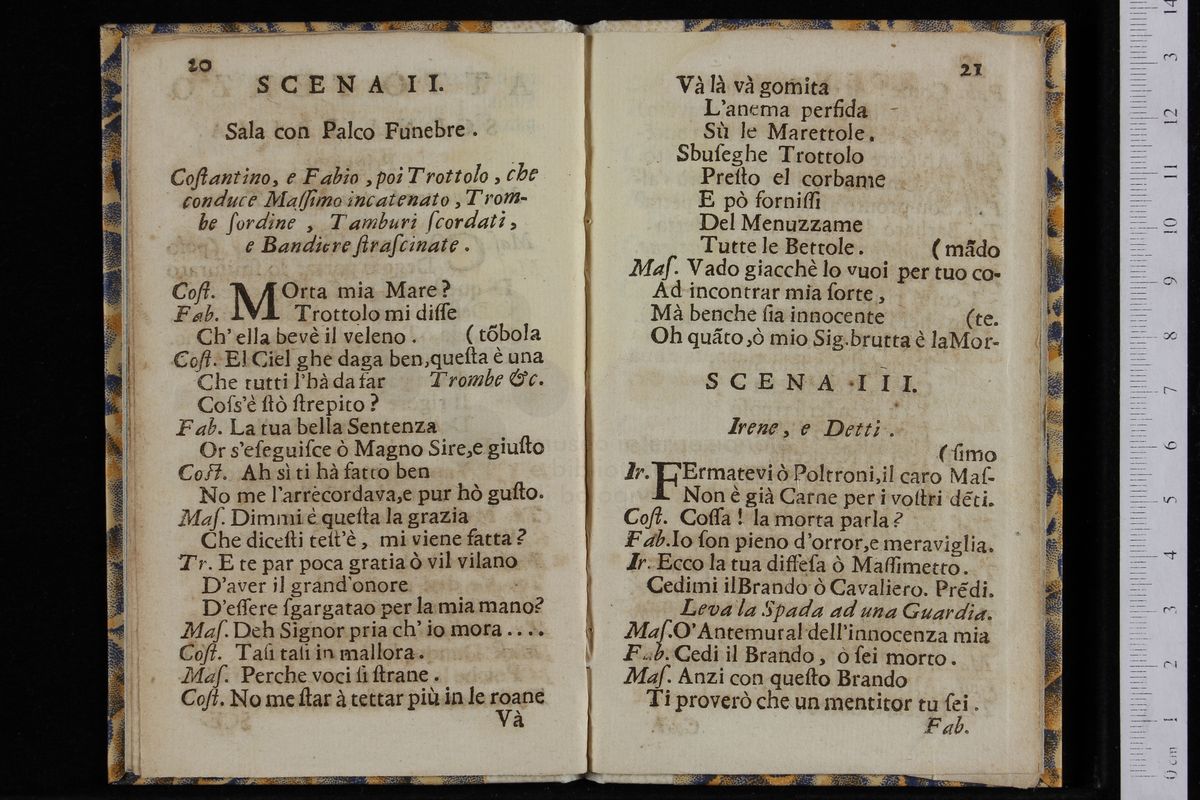 20
SCENA II.
Sala con Palco Funebre .
Coſtantino, e Fabio , poi Trottolo , che
conduce Maſſimo incatenato , Trom-
be ſordine , Tamburi ſcordati ,
e Bandiere ſtraſcinate .
Coſt. MOrta mia Mare ?
Fab. Trottolo mi diſſe
Ch' ella bevè il veleno . ( tõbola
Coſt. El Ciel ghe daga ben,queſta è una
Che tutti l'hà da far Trombe &c.
Coſs'è ſtò ſtrepito ?
Fab. La tua bella Sentenza
Or s'eſeguiſce ò Magno Sire,e giuſto
Coſt. Ah sì ti hà fatto ben
No me l'arrecordava,e pur hò guſto.
Maſ. Dimmi è queſta la grazia
Che diceſti teſt'è , mi viene fatta ?
Tr. E te par poca gratia ò vil vilano
D'aver il grand'onore
D'eſſere ſgargatao per la mia mano?
Maſ. Deh Signor pria ch' io mora ....
Coſt. Taſi taſi in mallora .
Maſ. Perche voci ſi ſtrane .
Coſt. No me ſtar à tettar più in le roane
Và
21
Và là và gomita
L'anema perfida
Sù le Marettole.
Sbuſeghe Trottolo
Preſto el corbame
E pò forniſſi
Del Menuzzame
Tutte le Bettole. ( mãdo
Maſ. Vado giacchè lo vuoi per tuo co-
Ad incontrar mia ſorte ,
Mà benche ſia innocente (te.
Oh quãto,ò mio Sig.brutta è laMor-
SCENA III.
Irene , e Detti .
( ſimo
Ir. FErmatevi ò Poltroni,il caro Maſ-
Non è già Carne per i voſtri dẽti.
Coſt. Coſſa ! la morta parla ?
Fab.Io ſon pieno d'orror,e meraviglia.
Ir. Ecco la tua diffeſa ò Maſſimetto.
Cedimi ilBrando ò Cavaliero. Prẽdi.
Leva la Spada ad una Guardia.
Maſ.O'Antemural dell'innocenza mia
Fab. Cedi il Brando , ò ſei morto .
Maſ. Anzi con queſto Brando
Ti proverò che un mentitor tu ſei .
Fab.
0 cm 1 2 3 4 5 6 7 8 9 10 11 12 13 14